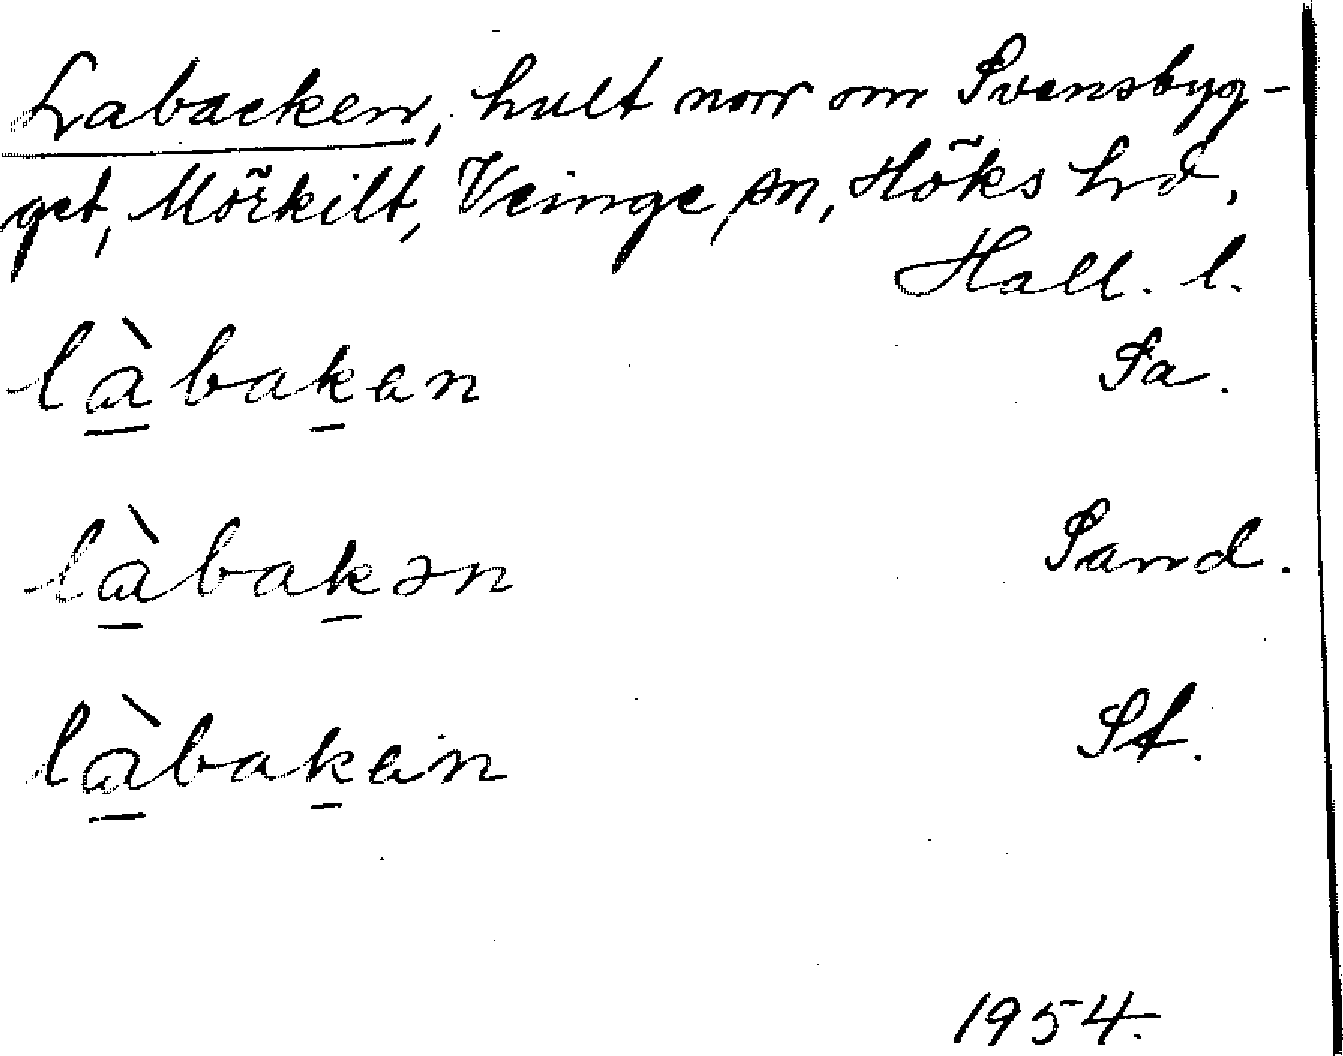 Labacken, hult norr om Svensbyg-
get, Mörkilt, Veinge sn, Höks hd,
Hall. l.
là̱baḵan Sa.
là̱baḵən Sand.
là̱baḵan St.
1954.